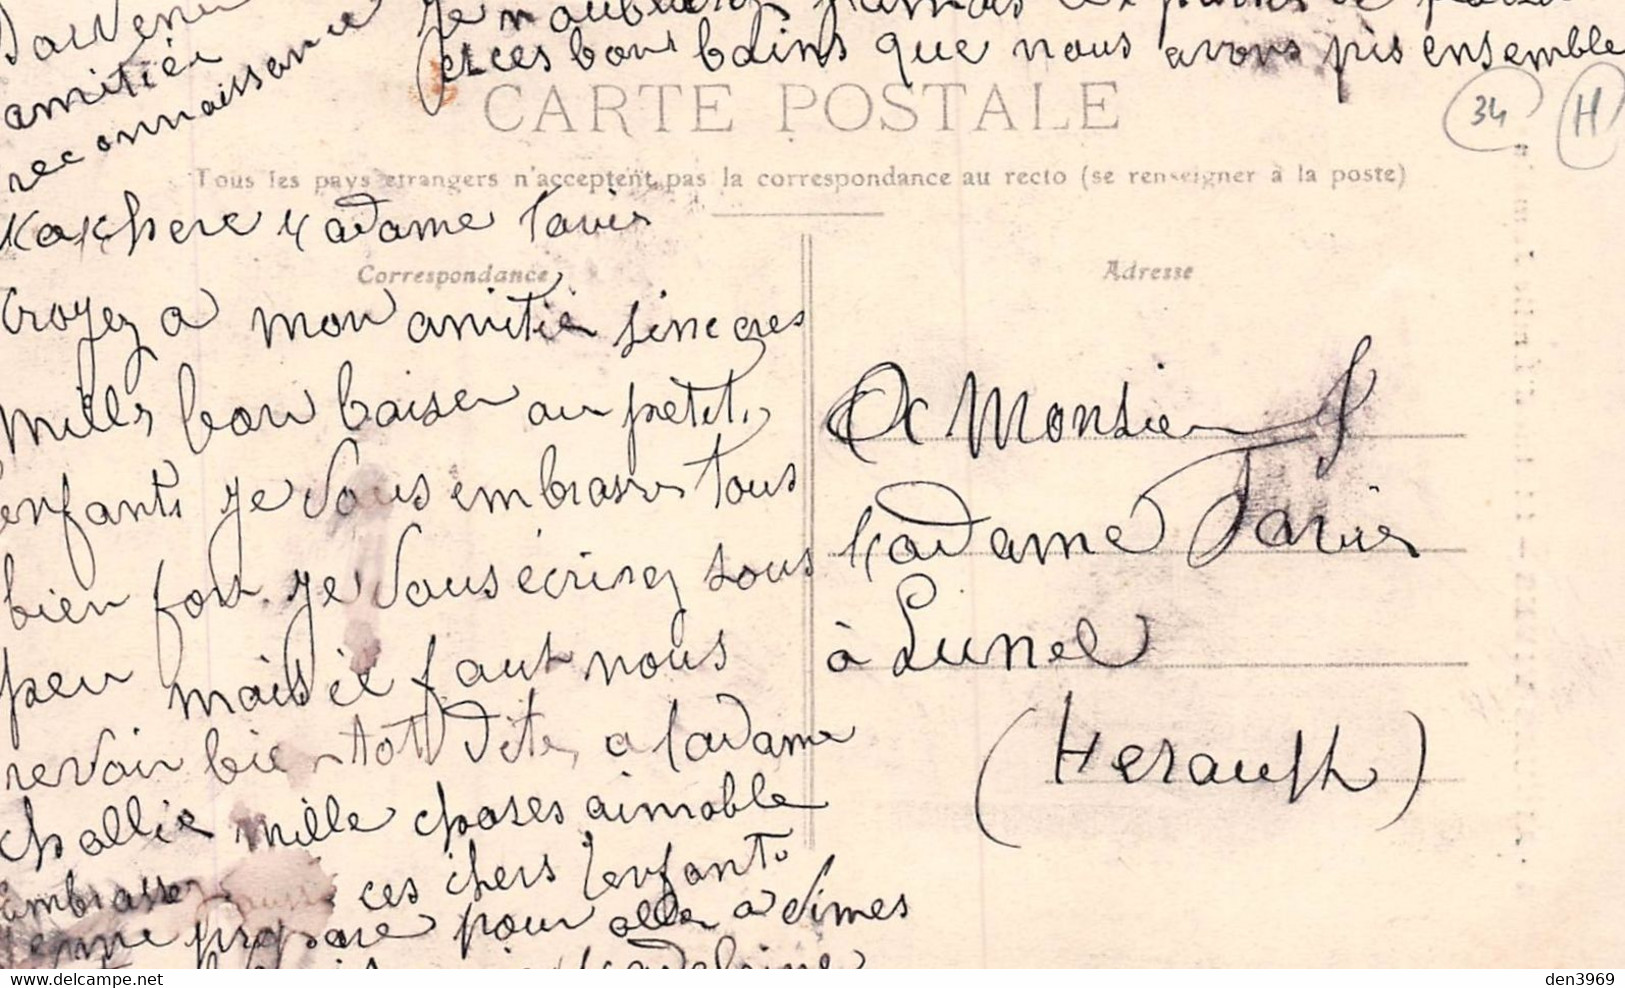 Souvenir
amitiée
reconnaissance
Je n'oublierez jamais les parties de plaisir
et ces bons bains que nous avons pis ensemble
CARTE POSTALE
34
H
Tous les pays étrangers n'acceptent pas la correspondance au recto (se renseigner à la poste)
Ma chere Madame Favier
Correspondance
Adresse
Croyez a mon amitié sinceres
mills bon baiser au petit
enfants je vous embrasses tous
bien fort je vous écrirez sous
peu mais il faut nous
revoir bientot Dites a Madame
Challié mille choses aimable
embrasser aussi ces chers enfants
je me prepare pour aller a Nimes
Madeleine
A Monsieur &
Madame Favier
à Lunel
(Herault)
den3969